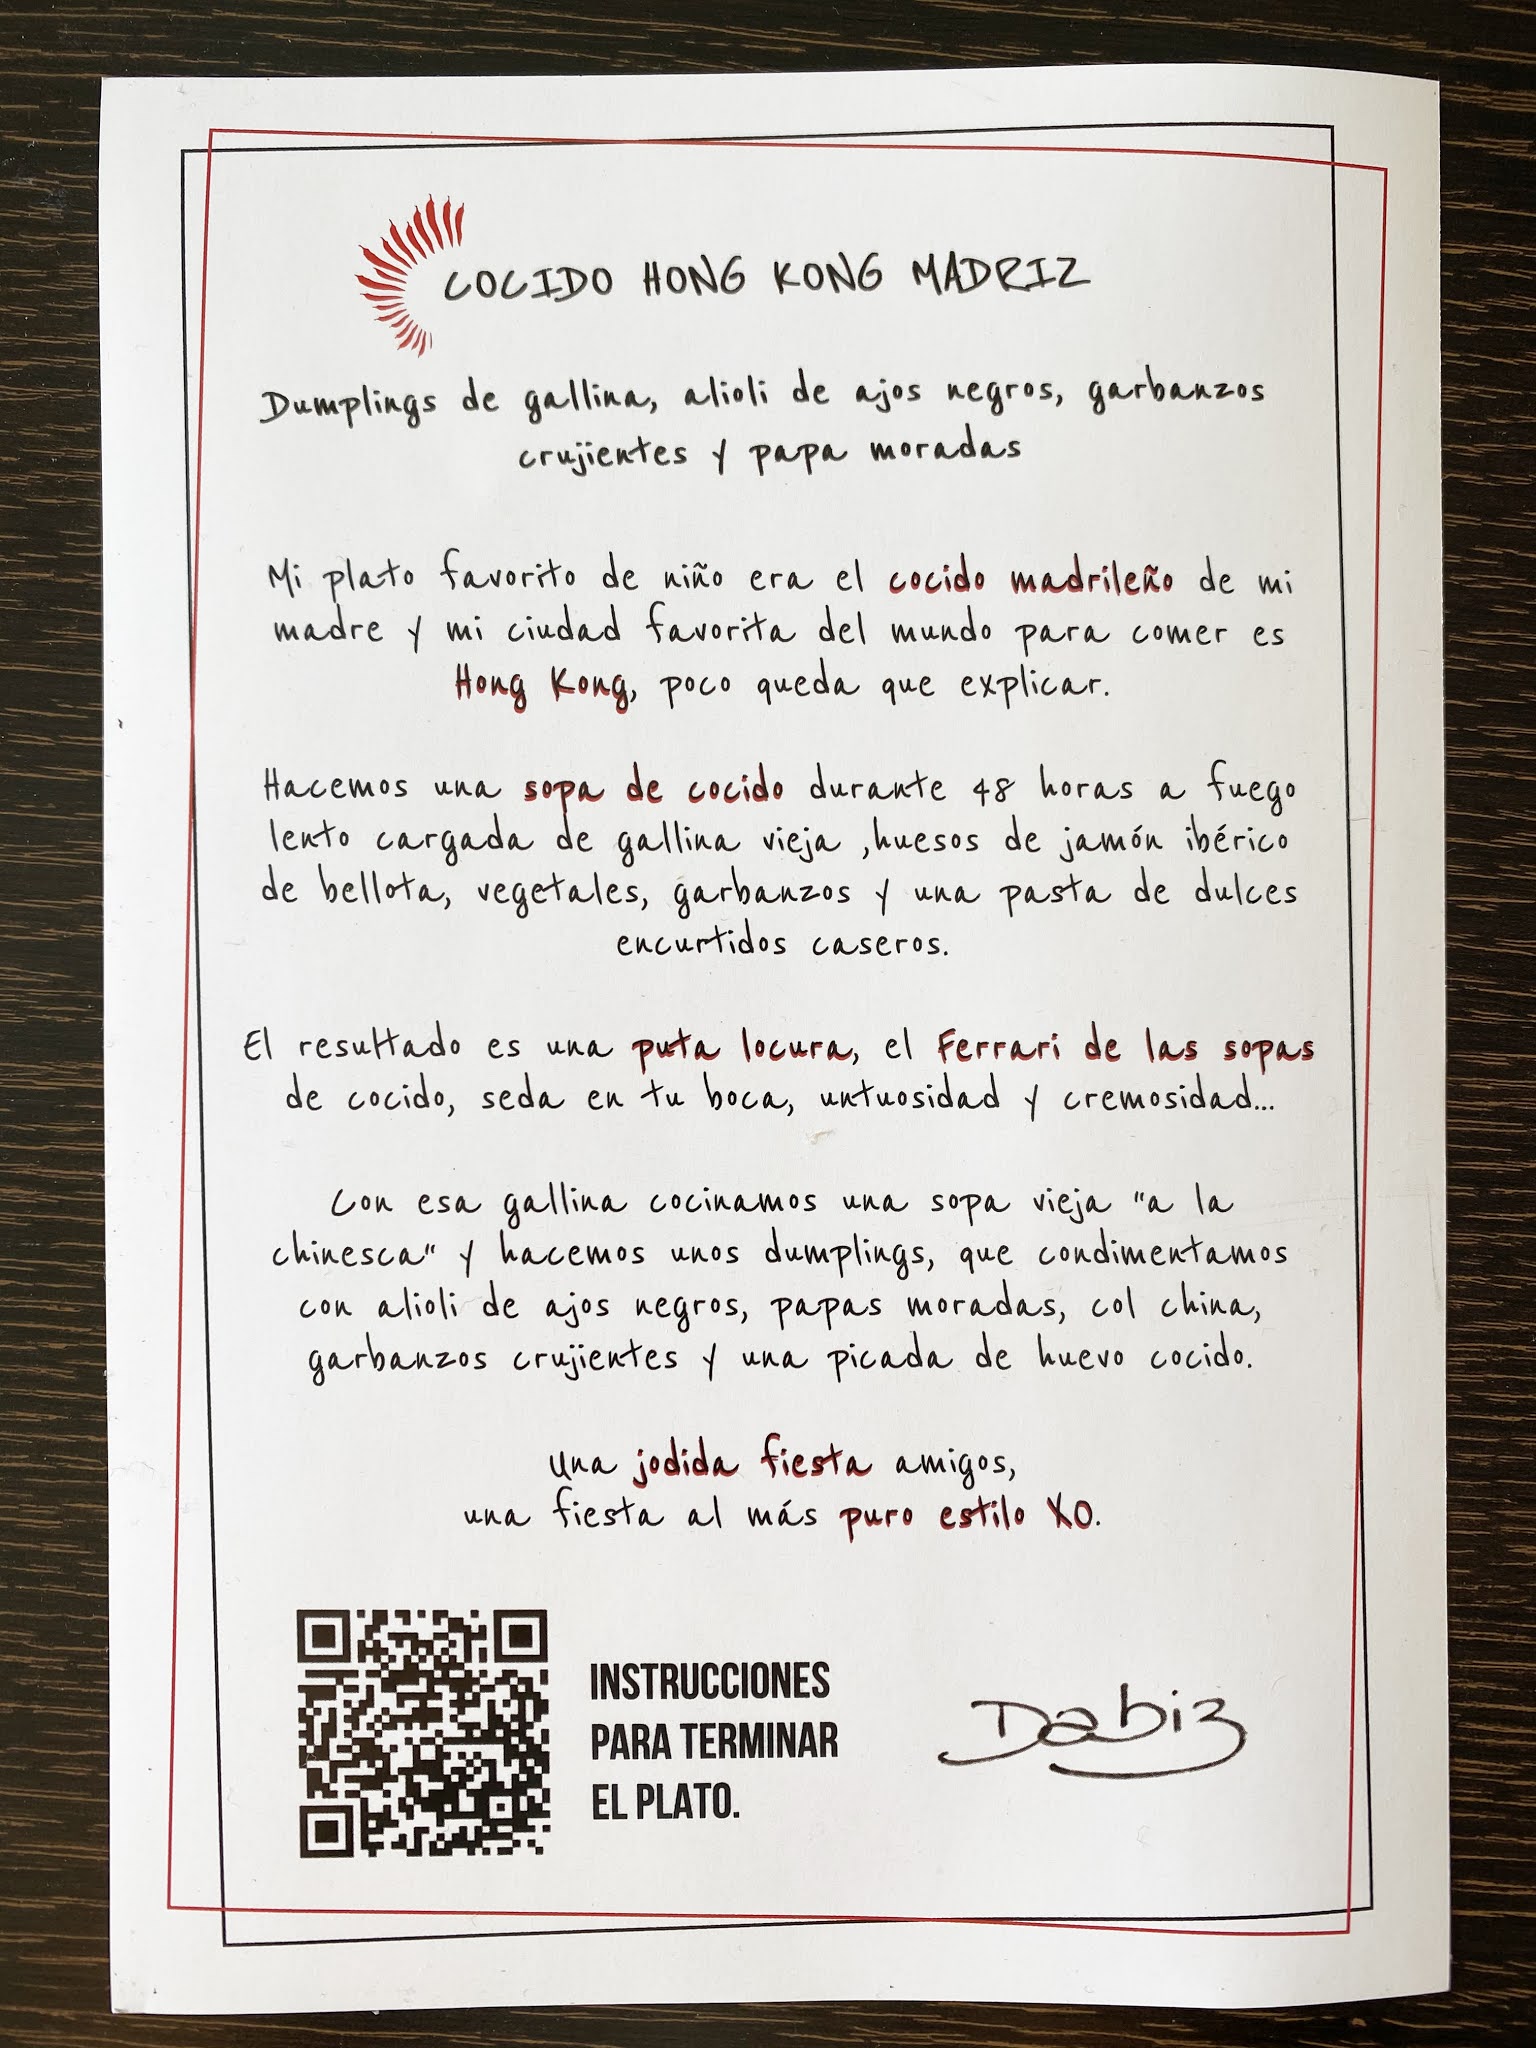 COCIDO HONG KONG MADRIZ
Dumplings de gallina, alioli de ajos negros, garbanzos
crujientes y papa moradas
Mi plato favorito de niño era el cocido madrileño de mi
madre y mi ciudad favorita del mundo para comer es
Hong Kong, poco queda que explicar.
Hacemos una sopa de cocido durante 48 horas a fuego
lento cargada de gallina vieja ,huesos de jamón ibérico
de bellota, vegetales, garbanzos y una pasta de dulces
encurtidos caseros.
El resultado es una puta locura, el Ferrari de las sopas
de cocido, seda en tu boca, untuosidad y cremosidad...
Con esa gallina cocinamos una sopa vieja "a la
chinesca" y hacemos unos dumplings, que condimentamos
con alioli de ajos negros, papas moradas, col china,
garbanzos crujientes y una picada de huevo cocido.
Una jodida fiesta amigos,
una fiesta al más puro estilo XO.
INSTRUCCIONES
PARA TERMINAR
EL PLATO.
Dabiz